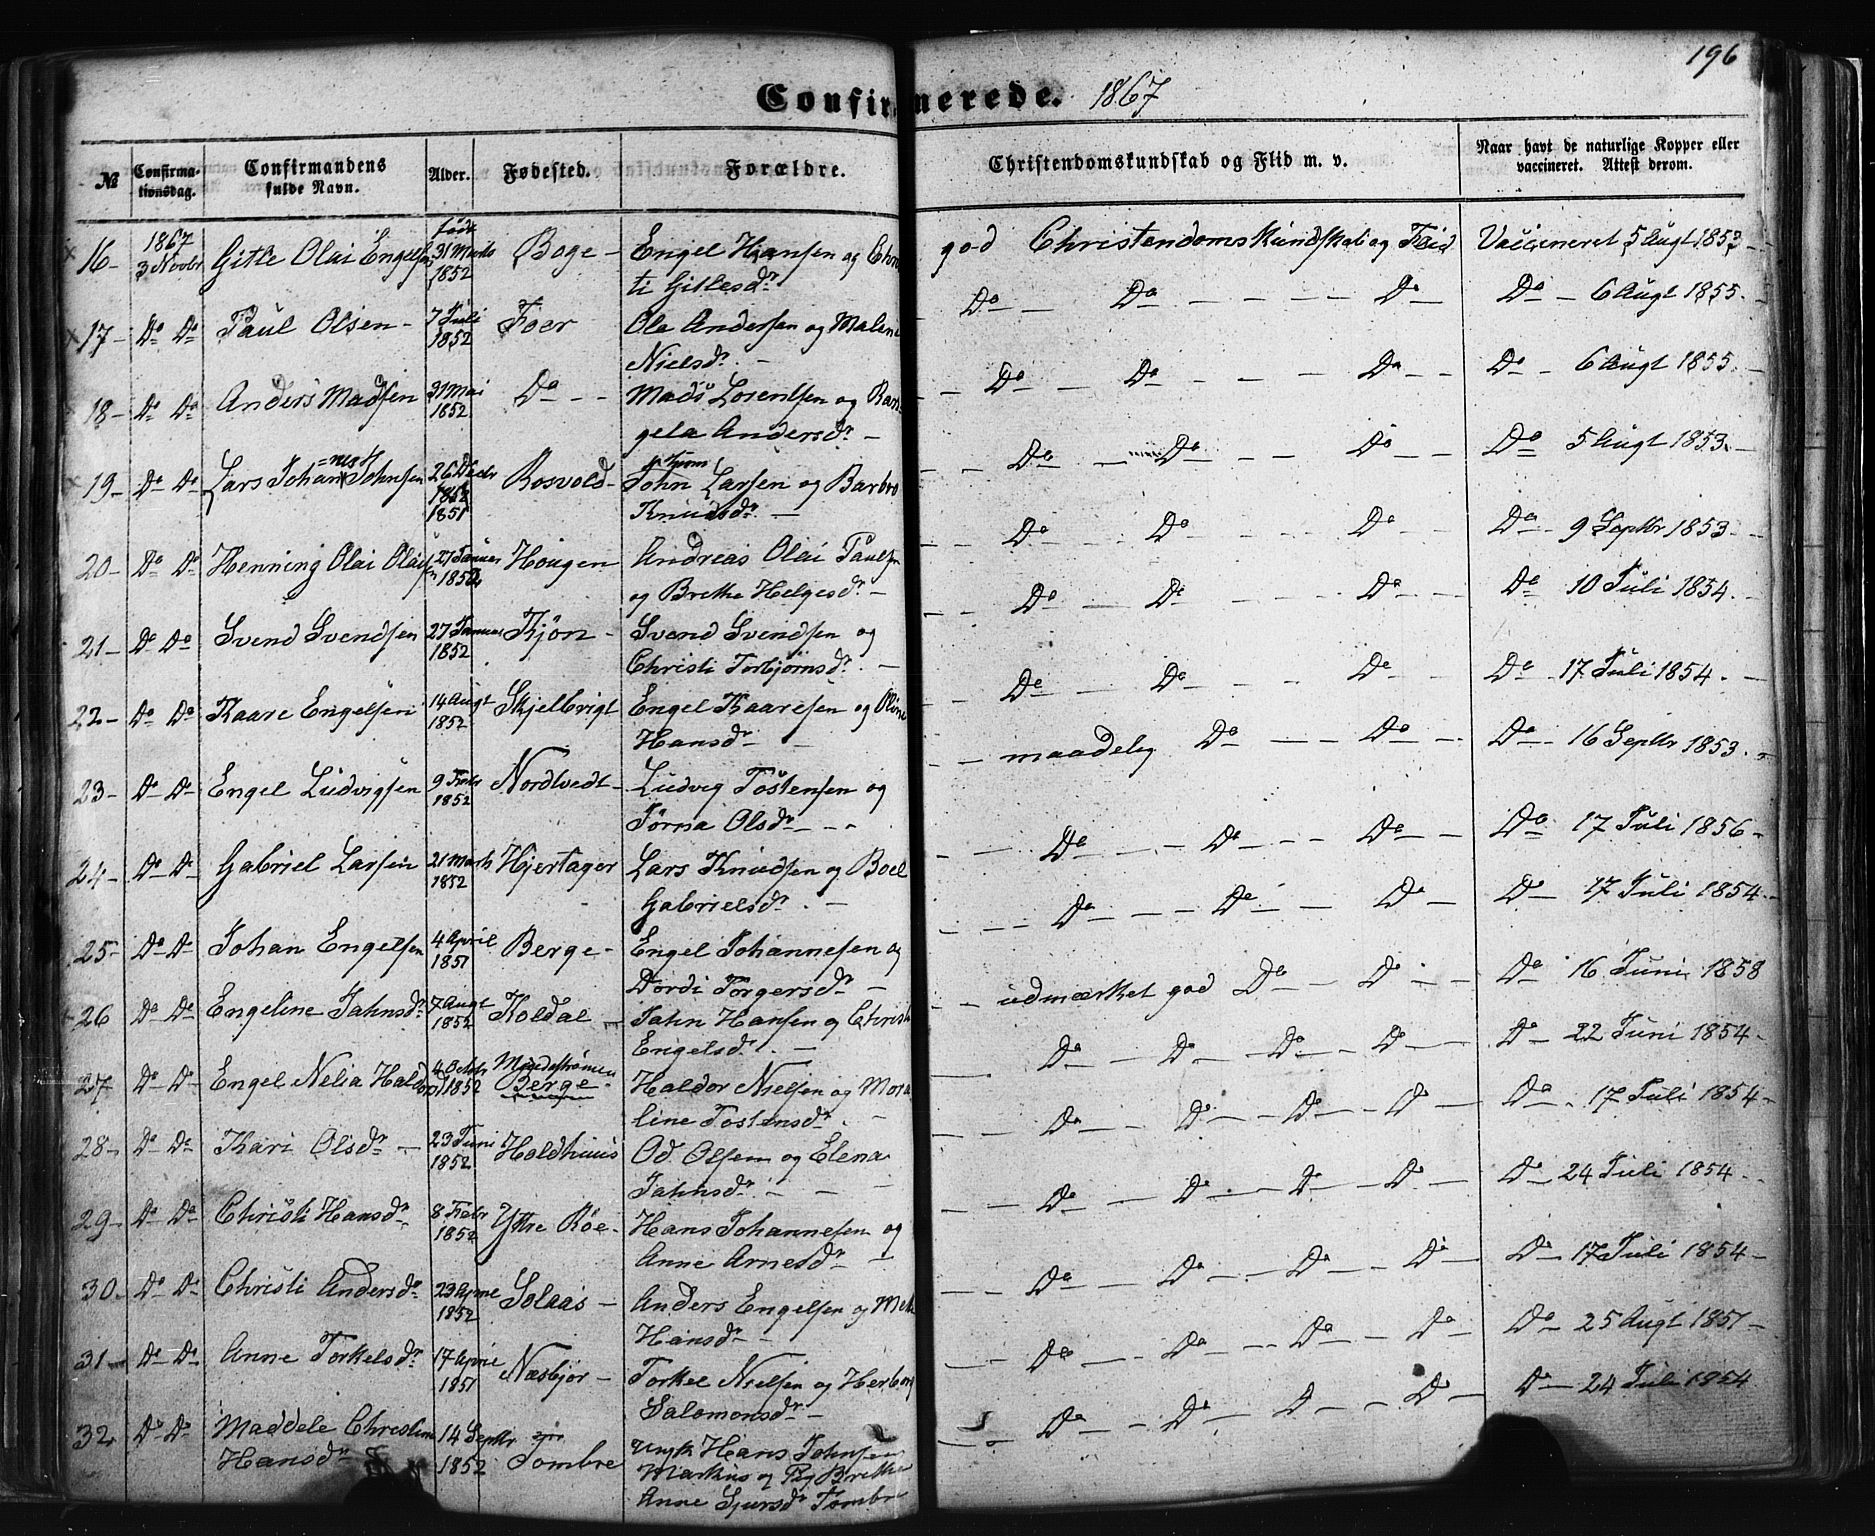 196
Confirmerede. 1867
№
Confirma-
tionsdag.
Confirmandens
fulde Navn.
Alder.
Fødested.
Forældre.
Christendomskundskab og Flid m. v.
Naar havt de naturlige Kopper eller
vaccineret. Attest derom.
16- 1867 3 Novbr Gitle Olai Engelsen født 31 Marts 1852 Boge- Engel Hansen og Chris
ti Gitlesdr god Christendomskundskab og Flid Vaccineret 5 Augt 1853-
17- Do Do Paul Olsen- 7 Juli 1852 Foer Ole Andersen og Malene
Nielsdr. - Do Do - - - - Do - Do - 6 Augt 1855.
18- Do Do Anders Madsen 31 Mai 1852 Do - - Mads Lorentsen og Ran-
gela Andersdr - Do - Do - - - Do - - Do - 6 Augt 1855.-
19- Do Do Lars Johannes Johnsen 26 Decbr 1852 1851 Bosvold- John Larsen og Barbro
Knudsdr. - Do - Do - - Do - Do 5 Augt 1853.-
20- Do Do Henning Olai Olaisen 27 Januar 1852 Hougen Andreas Olai Paulsen
og Brethe Helgesdr. - Do - Do - - Do - Do - 9 Septbr 1853-
21- Do Do Svend Svendsen 27 Januar 1852 Kjøn- Svend Svendsen og
Christi Torbjørnsdr. - Do - Do - - Do - Do 10 Juli 1854.
22- Do Do Kaare Engelsen 14 Augt 1852 Skjelbrigt Engel Kaaresen og Oline
Hansdr - Do - Do - - Do - Do - 17 Juli 1854.-
23- Do Do Engel Ludvigsen 9 Febr 1852 Nordtvedt- Ludvig Tostensen og
Jørna Olsdr - - - maadelig Do - - Do - - Do - 16 Septbr 1853.
24- Do Do Gabriel Larsen 21 Marts 1852 Hjertager Lars Knudsen og Boel
Gabrielsdr. - Do - Do - - Do - Do 17 Juli 1856-
25- Do Do Johan Engelsen 4 April 1851 Berge- Engel Johannesen og
Dordi Torgersdr. - Do - - Do - - Do - Do - 17 Juli 1854.
26 Do Do Engeline Jahnsdr. 7 Augt 1852 Koldal - Jahn Hansen og Christi
Engelsdr. - udmærket god Do - Do - Do - 16 Juni 1858
27- Do Do Engel Nelia Haldorsd. 4 Octbr 1852 Berge- Haldor Nielsen og
line Tostensdr. - Do - Do - Do - Do - Do - 22 Juni 1854-
28- Do Do Kari Olsdr. - 23 Juni 1852 Holdhuus Od Olsen og Elena
Jahnsdr. - - - Do - Do - Do - Do - Do - 17 Juli 1854-
29- Do Do Christi Hansdr. 8 Febr 1852 Ytre Röe- Hans Johannesen og
Anne Arnesdr. - Do - Do - Do - Do - Do - 24 Juli 1854-
30- Do Do Christi Andersdr. 23 April 1852 Solaas - Anders Engelsen og
Hansdr - Do - Do - Do - Do - Do - 17 Juli 1854-
31- Do Do Anne Torkelsdr. 17 April 1851 Næsbjør - Torkel Nielsen og Herborg
Salomonsdr - Do - Do - Do - Do - Do - 25 Augt 1851-
32 Do Do Maddele Christine
Hansdr 14 Septbr 1852 Tombre Ungk Hans Johnsen
Markhus og Pig Brethe
Anne Sjursdr Tombre Do - Do - Do - Do - Do - 24 Juli 1854